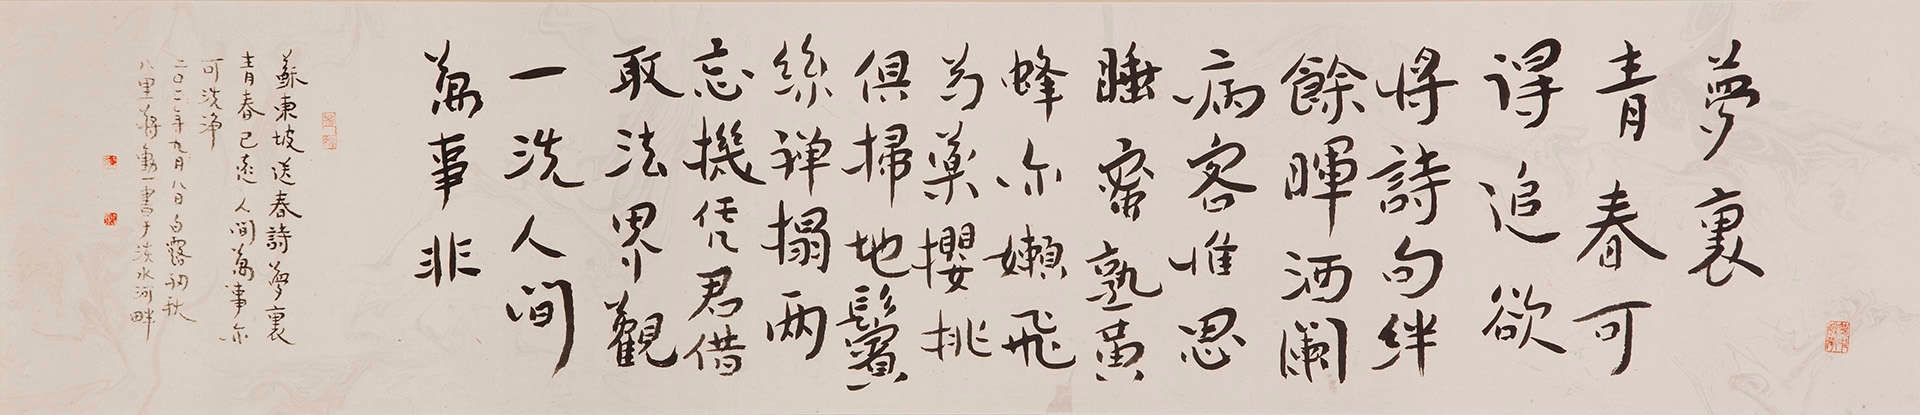 夢裏
青春可
得追欲
將詩句絆
餘暉洒闌
病客惟思
睡蜜熟黃
蜂亦嬾飛
芍藥櫻桃
俱掃地鬢
絲禪榻兩
忘機凭君借
取法界觀
一洗人間
萬事非
蘇東坡送春詩夢裏
青春已遠人間萬事亦
可洗淨
二〇二二年九月八日白露初秋
八里蔣勳一書于淡水河畔